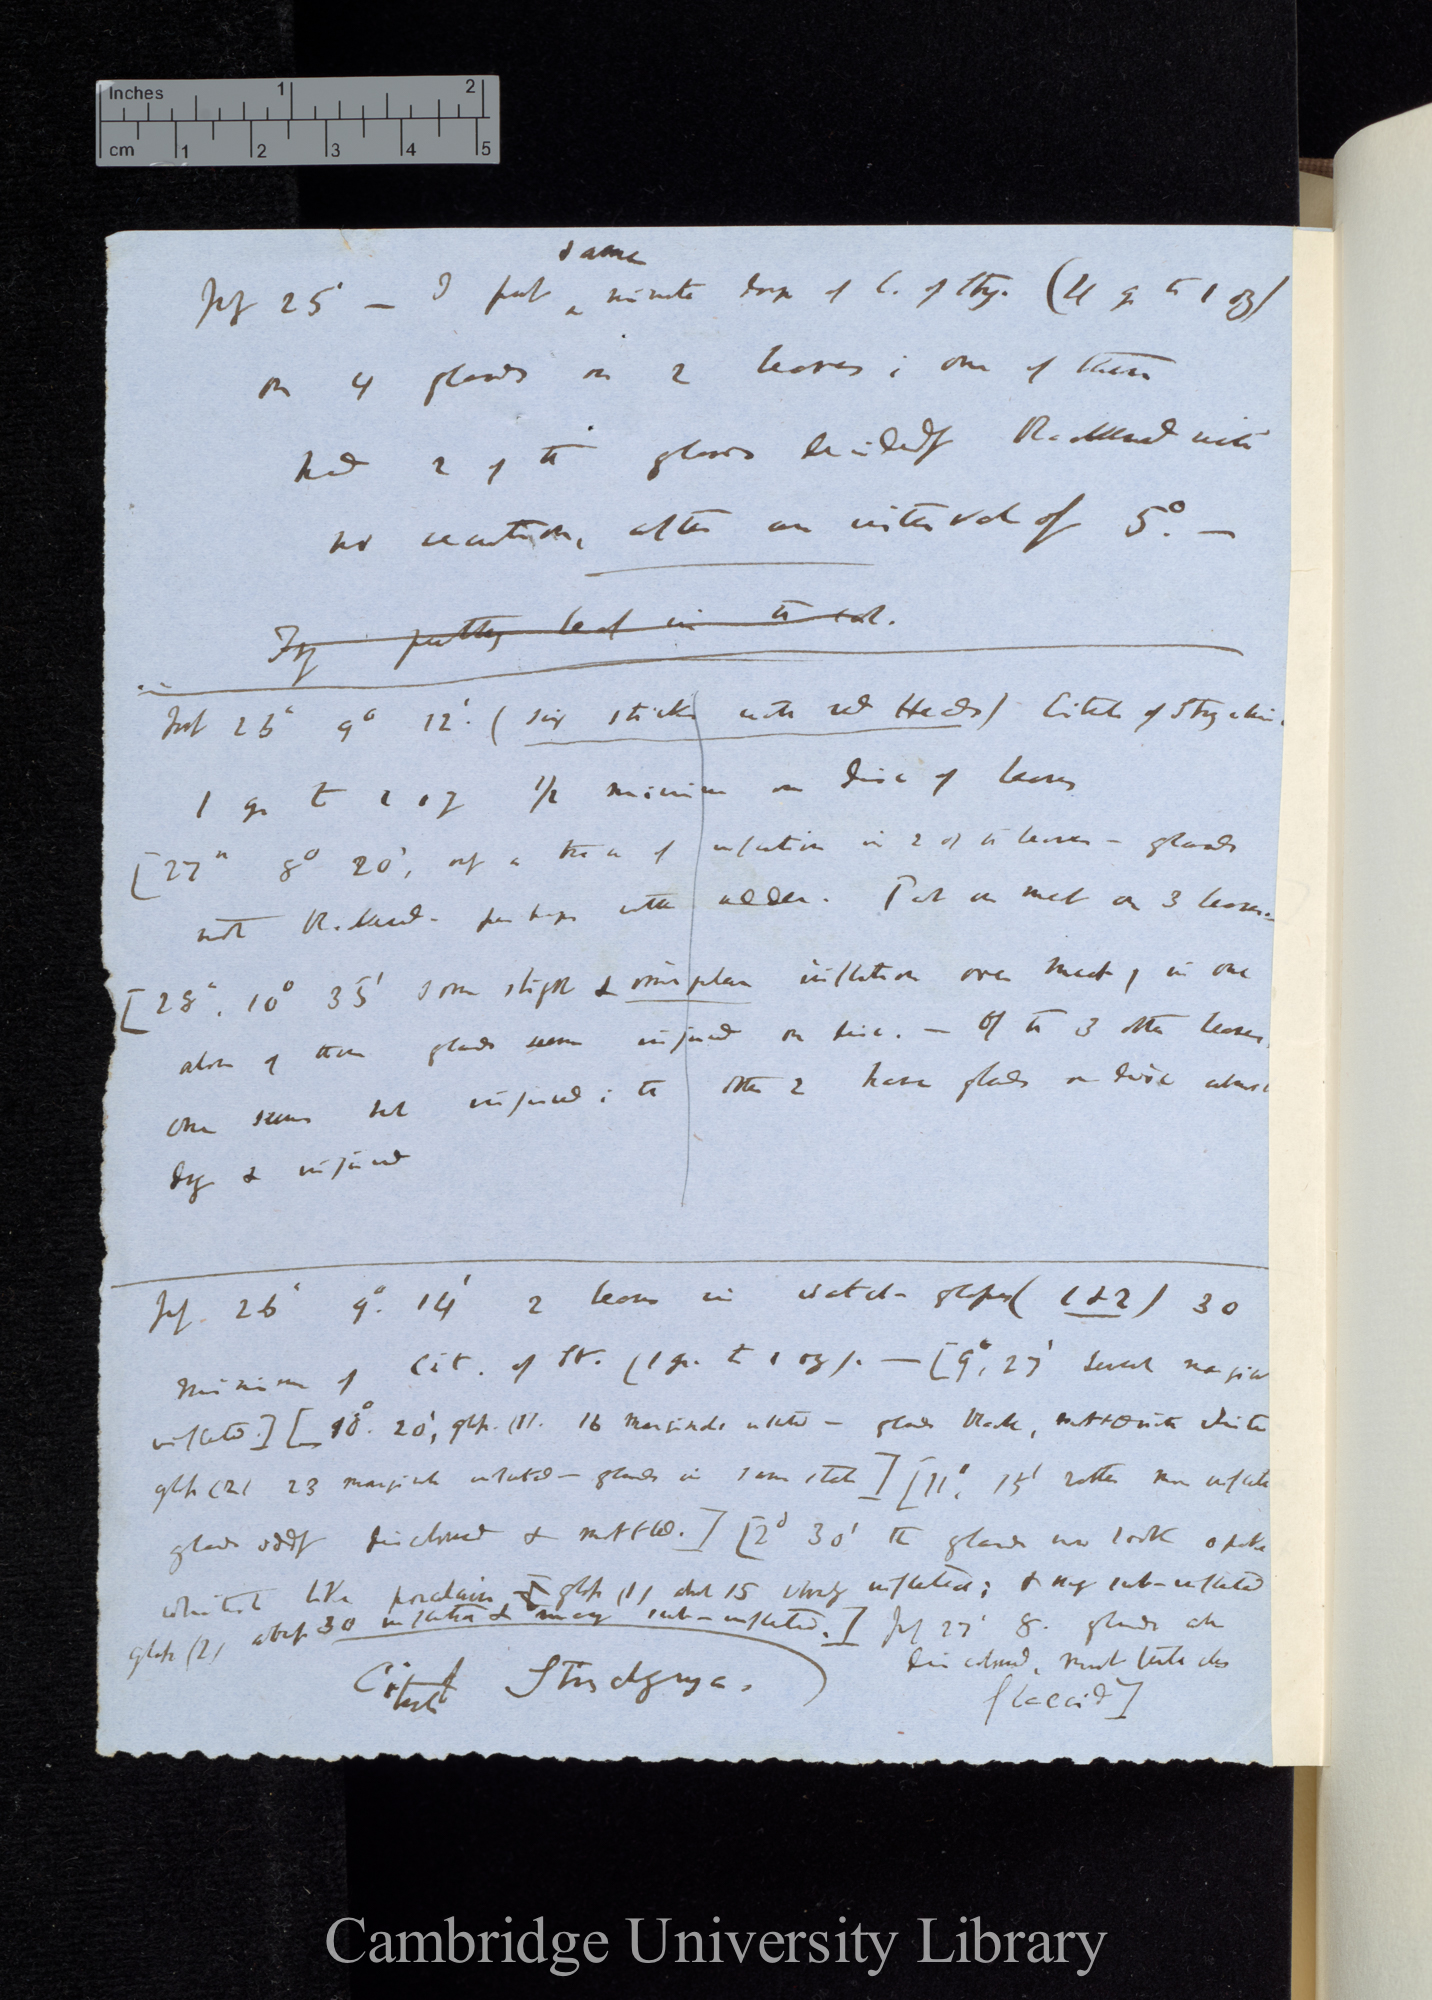 Inches 1 2
cm 1 2 3 4 5
same
July 25' — I put a minute drop of C. of Stry. (4 gr to 1 oz)
on 4 glands on 2 leaves; one of them
had 2 of the glands decidedly blackened with
no inflection, after an interval of 5°. —
Try putting leaf in the sol.
July 25th 9° 12' (six sticks with red Heads) Citrate of Strychnine
1 gr to 2 oz 1/2 minim on disc of leaves
[27th 8° 20', only a trace of inflection in 2 of the leaves — glands
not blackened — perhaps rather redder. Put on meat on 3 leaves.—
[28th. 10° 35' some slight & irregular inflection over meat, in one
alone of them glands seem injured on disc. — Of the 3 other leaves,
one seems not injured; the other 2 have glands on disc almost
dry & injured
July. 26th 9°. 14' 2 leaves in watch-glasses (1 & 2) 30
minims of Cit. of St. (1 gr. to 1 oz). — [9°, 27' several marginal
inflected.] [10°. 20', glass. (1). 16 marginals inflected — glands black, mottled with white
glass (2) 23 marginals inflected — glands in same state] [11°, 15' rather more inflected
glands oddly discoloured & mottled.] [2° 30' the glands now look opake
whitish like porcelain glass (1) about 15 inflected; & many sub-inflected
glass (2) about 30 inflected & many sub-inflected.] July 27' 8. glands all
discoloured, most tentacles
flaccid]
Citrate of Strychnya.
Cambridge University Library